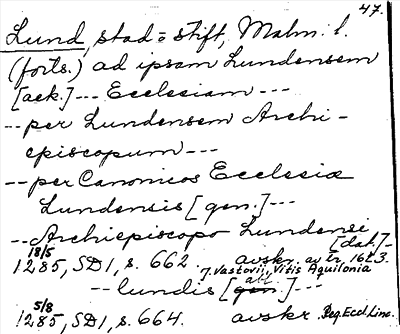 47.
Lund, stad = stift, Malm. l.
(forts.) ad ipsam Lundensem
[ack.] --- Ecclesiam ---
-- per Lundensem Archi-
episcopum ---
-- per Canonicos Ecclesiæ
Lundensis [gen.] ---
-- Archiepiscopo Lundensi
[dat.] -
18/5
1285, SD1, s. 662. avskr. av tr. 1623.
J. Vastovii, Vitis Aquilonia
abl.
-- lundis [gen.] ---
5/8
1285, SD1, s. 664. avskr. Reg. Eccl. Linc.